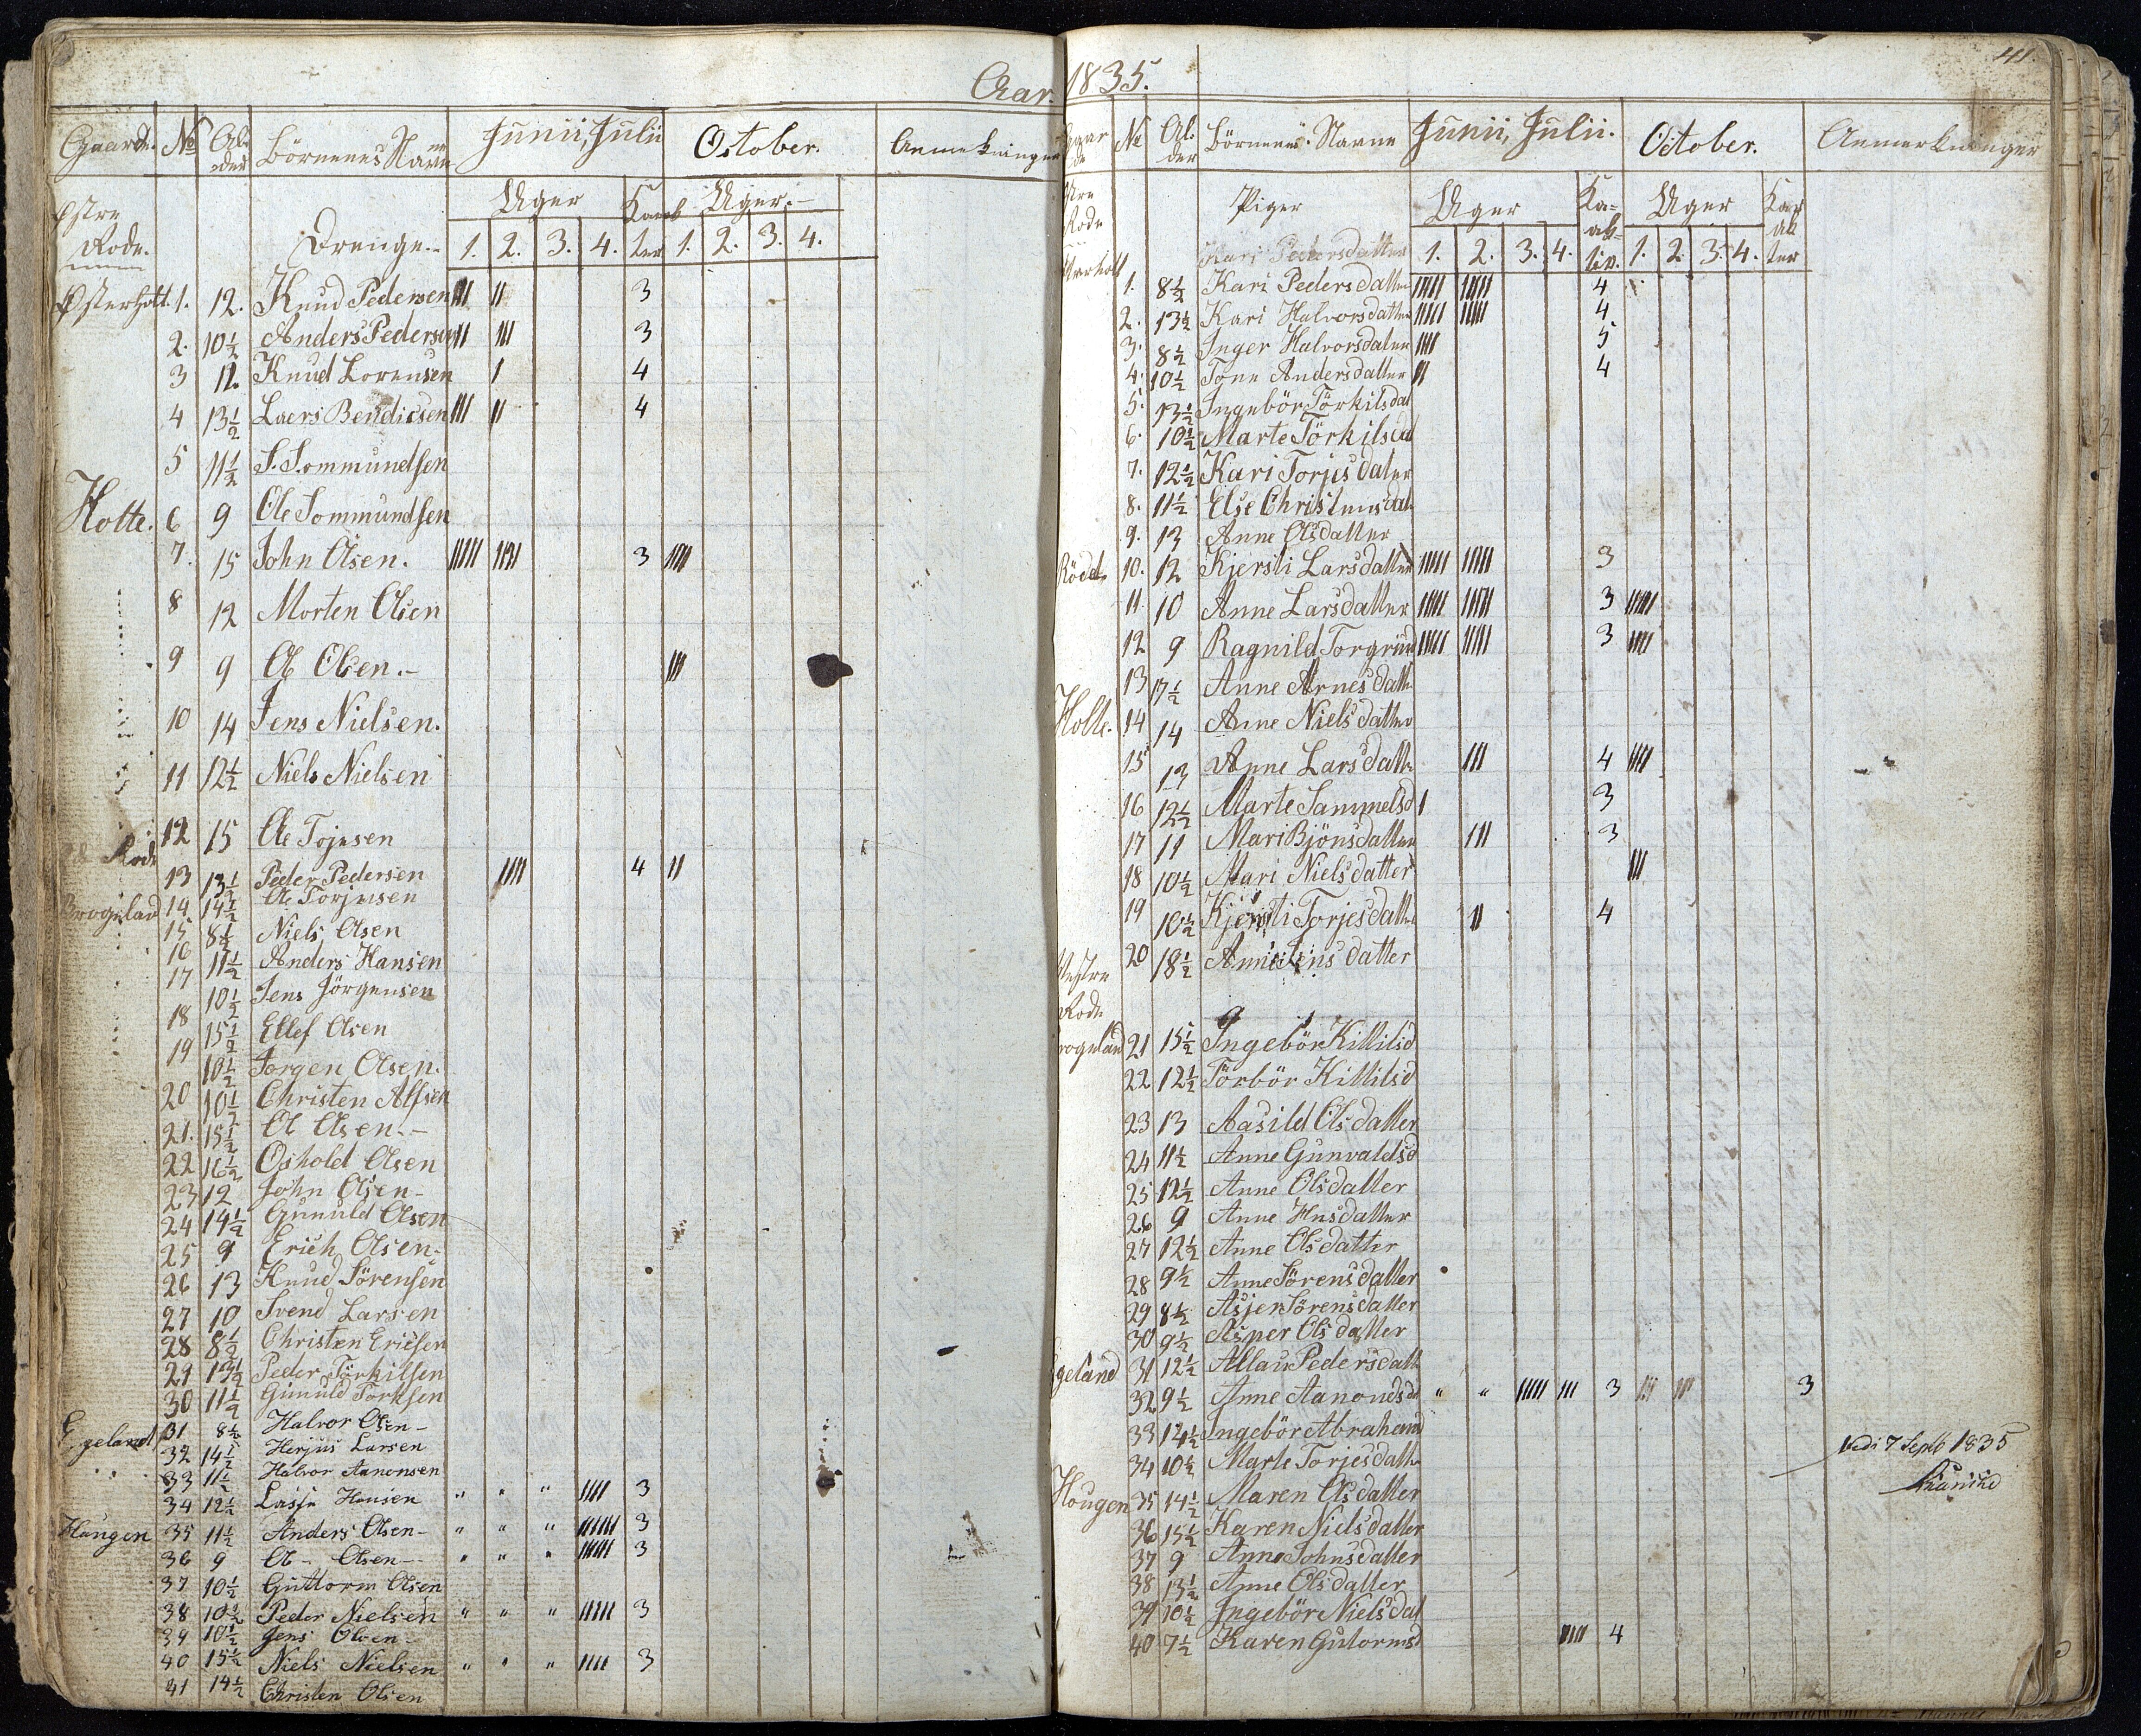 Aar 1835.
41.
Gaarde. No Al-der Börnenes Navne Junii, Julii October. Anmerkninger
Uger Karakter Uger.
Östre Rode. Drenge. 1. 2. 3. 4. 1. 2. 3. 4.
Østerholt. 1. 12. Knud Pedersen III II 3
2. 10½ Anders Pedersen II III 3
3 12. Knud Lorensen I 4
4 13½ Laers Bendicsen III II 4
5 11½ S. Sommundsen
Holte. 6 9 Ole Sommundsen
7. 15 John Olsen. IIIII IIIII 3 IIII
8 12 Morten Olsen
9 9 Ol Olsen.- III
10 14 Jens Nielsen.
11 12½ Niels Nielsen
12 15 Ole Tojusen
Rode
13 13½ Peder Pedersen IIII 4 II
14 14½ Ole Torjusen
15 8½ Niels Olsen
16 11½ Anders Hansen
17 10½ Jens Jörgensen
18 15½ Ellef Olsen
19 10½ Jorgen Olsen.
20 10½ Christen Alfsen
21. 15½ Ol Olsen.-
22 16½ Oshold Olsen
23 12 John Olsen-
24 14½ Gunuld Olsen
25 9 Erich Olsen.
26 13 Knud Sörensen
27 10 Svend Larsen
28 8½ Christen Ericsen
29 13½ Peder Törkilsen
30 11½ Gunuld Torksen
Egeland 31 8½ Halvor Olsen-
32 14½ Herjus Larsen
33 11½ Halvor Aanonsen
34 12½ Lasse Hansen " " " IIII 3
Haugen 35 11½ Anders Olsen- " " " IIIIII 3
36 9 Ol- Olsen- " " " IIIII 3
37 10½ Guttorm Olsen
38 10½ Peder Nielsen " " " IIIII 3
39 10½ Jens Olsen-
40 15½ Niels Nielsen " " " IIII 3
41 14½ Christen Olsen
No Al-der Börnenes Navne Junii, Julii. October. Anmerkninger
Rode Piger Uger Uger
1. 2. 3. 4. 1. 2. 3. 4.
Kari Pedersdatter
1. 8½ Kari Pedersdatter IIIII IIIII 4
2. 13½ Kari Halvorsdatter IIIII IIIII 4
3. 8½ Inger Halvorsdater IIII 5
4. 10½ Tone Andersdatter II 4
5. 13½ Ingebör Törkilsdat
6. 10½ Marte Törkilsdat
7. 12½ Kari Torjesdater
8. 11½ Else Christensdat
9. 13 Anne Olsdatter
Röed 10. 12 Kjersti Larsdatter IIIII IIIII 3
11. 10 Anne Larsdatter IIIII IIIII 3 IIIII
12 9 Ragnild Torgrims IIIII IIIII 3 IIII
13 17½ Anne Arnesdatt
Holte. 14 14 Anne Nielsdatter
15 13 Anne Larsdatt III 4 IIII
16 12½ Marte Sammelsd I 3
17 11 Mari Bjönsdatter III 3
18 10½ Mari Nielsdatter III
19 10½ Kjersti Torjesdatter II 4
20 18½ Anne Jensdatter
Vestre
Rode
21 15½ Ingebör Killilsd
22 12½ Törbör Killilsd
23 13 Aasild Olsdatter
24 11½ Anne Gunvaldsd
25 12½ Anne Olsdatter
26 9 Anne Hnsdatter
27 12½ Anne Olsdatter
28 9½ Anne Sörensdatter
29 8½ Asjer Sörensdatter
30 9½ Asper Olsdatter
geland 31 12½ Allau Pedersdatt
32 9½ Anne Aanonsd " " IIIII III 3 III III 3
33 14½ Ingebör Abrahams
34 10½ Marte Torjesdatt
Hougen 35 14½ Maren Olsdatter
36 15½ Karen Nielsdatter
37 9 Anne Johnsdatter
38 13½ Anne Olsdatter
39 10½ Ingebör Nielsdat
40 7½ Karen Gutormsd IIII 4
7 Septb 1835